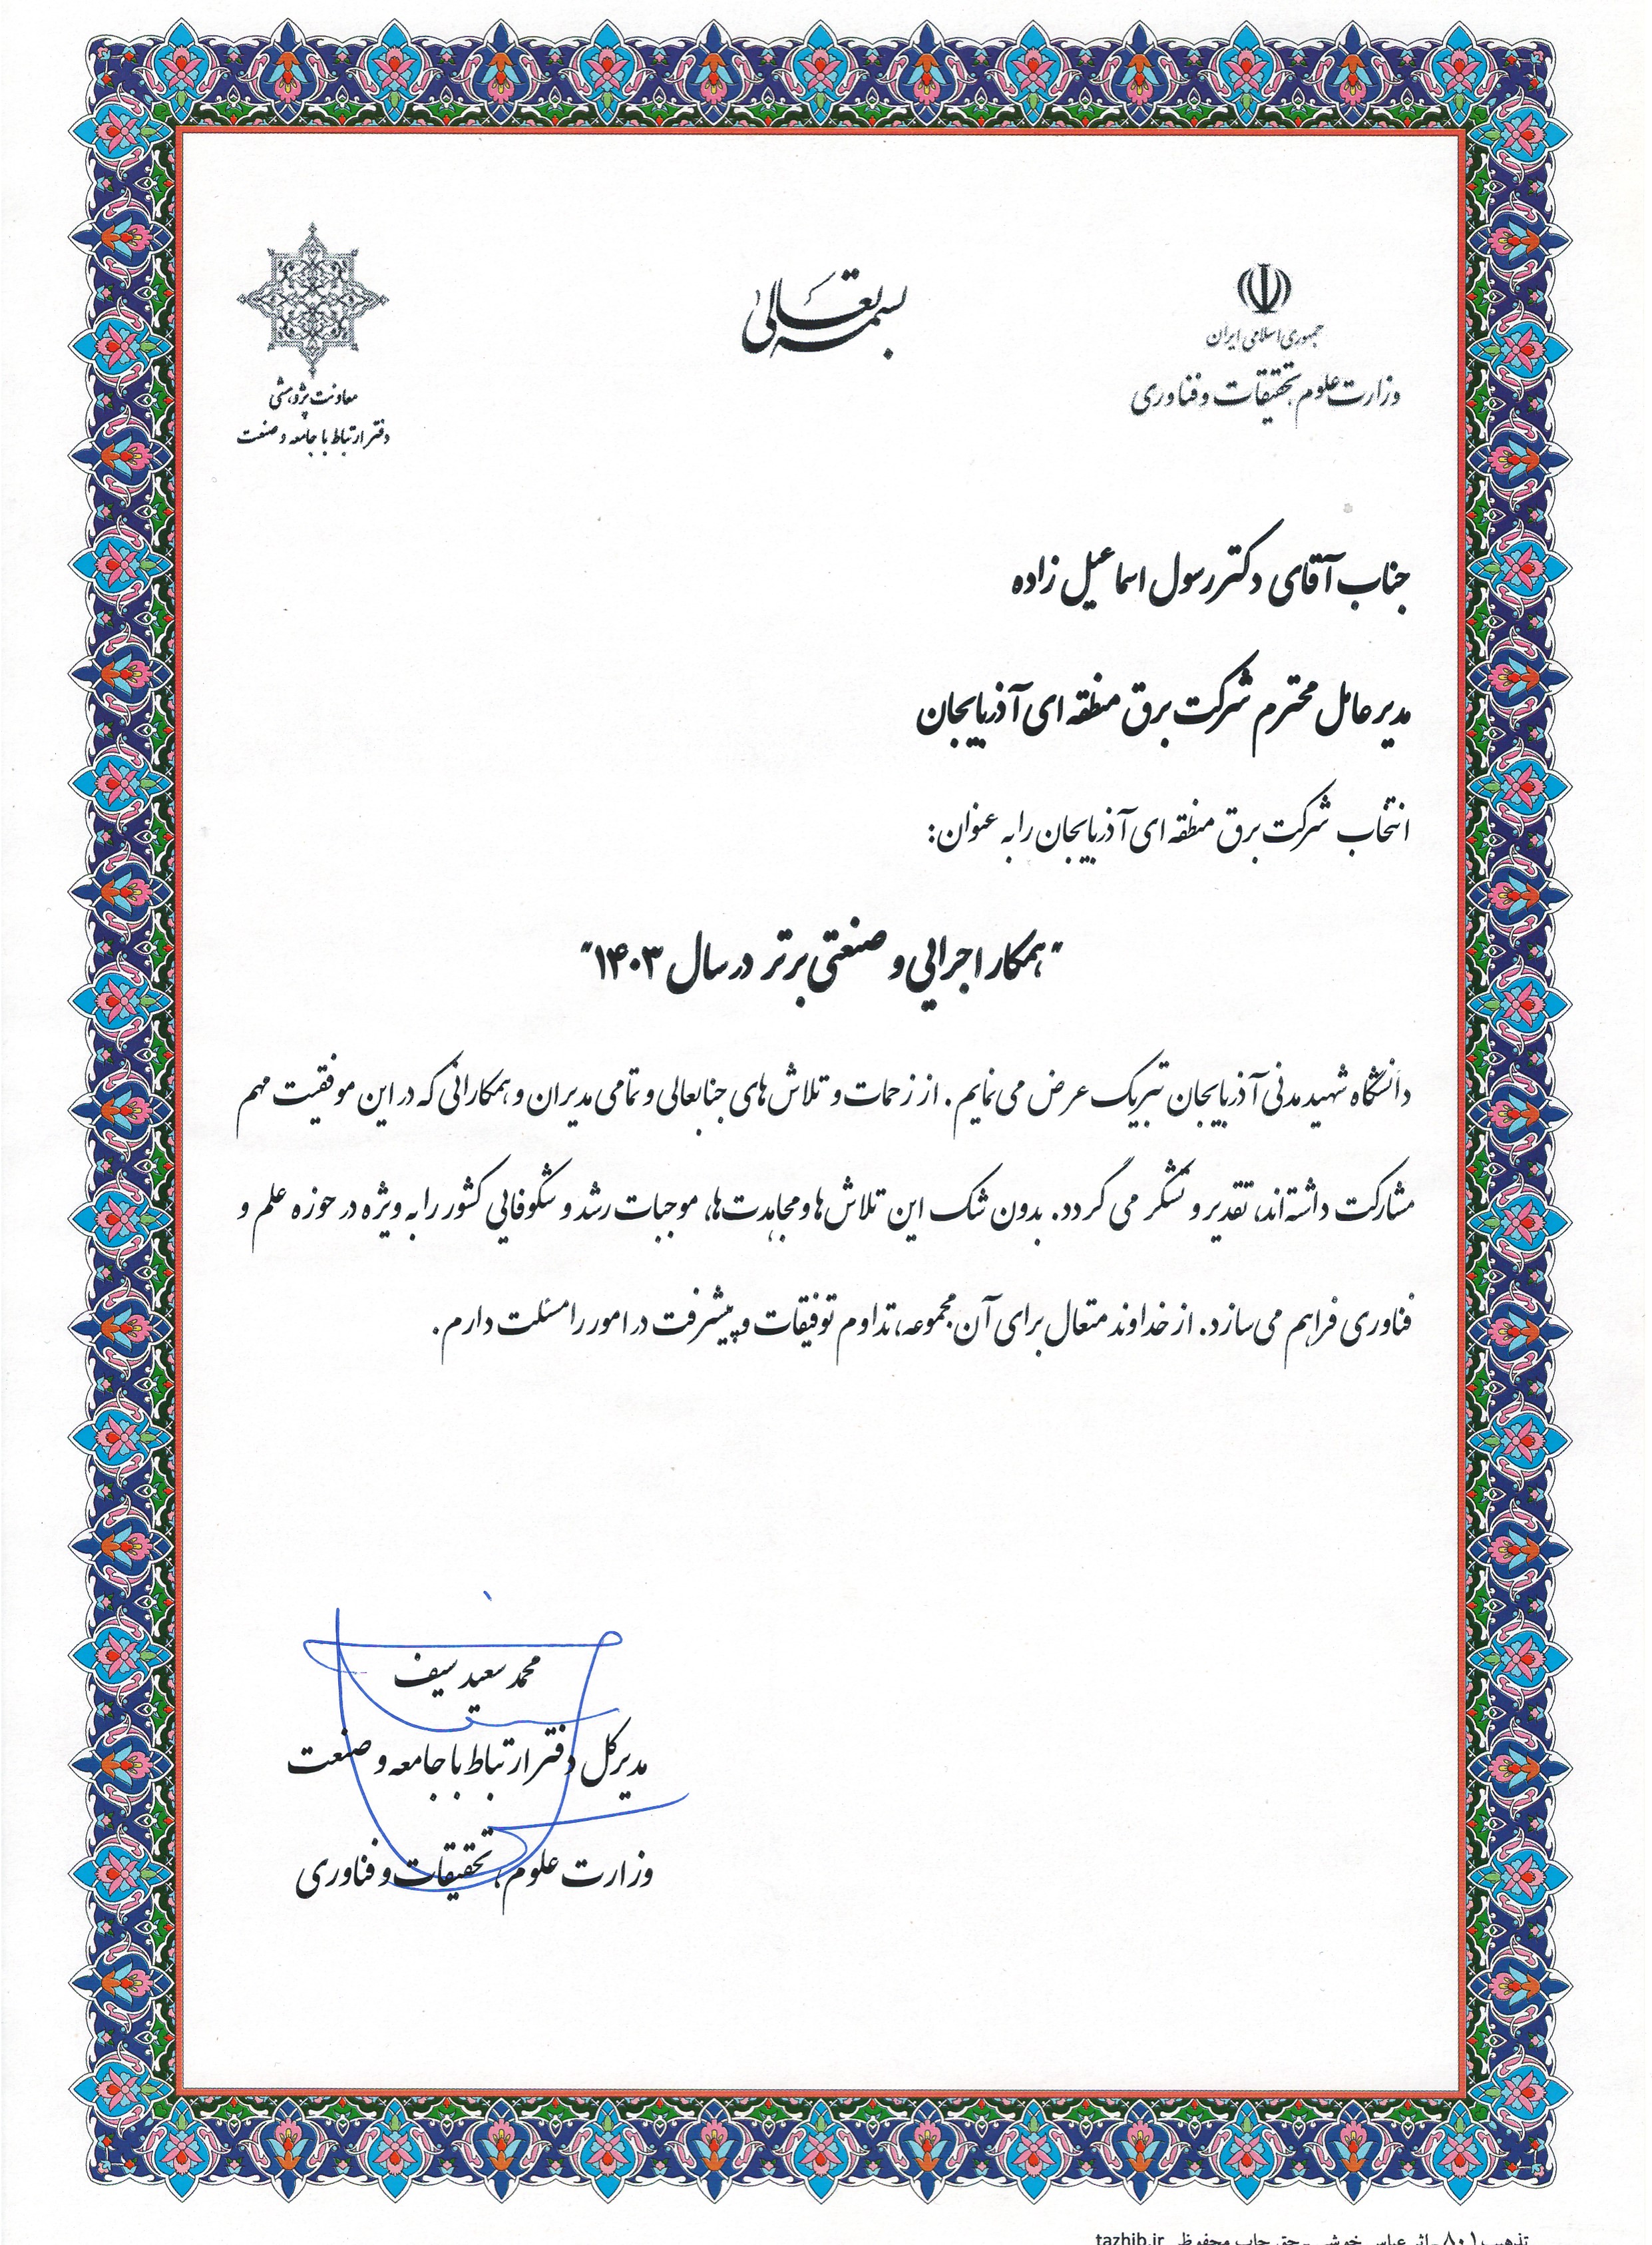 بسمه تعالی
جمهوری اسلامی ایران
وزارت علوم تحقیقات و فناوری
معاونت پژوهشی
دفتر ارتباط با جامعه و صنعت
جناب آقای دکتر رسول اسماعیل زاده
مدیر عامل محترم شرکت برق منطقه ای آذربایجان
انتخاب شرکت برق منطقه ای آذربایجان را به عنوان:
"همکار اجرایی و صنعتی برتر در سال ۱۴۰۳"
دانشگاه شهید مدنی آذربایجان تبریک عرض می نمایم. از زحمات و تلاش های جنابعالی و تمامی مدیران و همکارانی که در این موفقیت مهم
مشارکت داشته اند، تقدیر و تشکر می گردد. بدون شک این تلاش ها و مجاهدت ها، موجبات رشد و شکوفایی کشور را به ویژه در حوزه علم و
فناوری فراهم می سازد. از خداوند متعال برای آن مجموعه، تداوم توفیقات و پیشرفت در امور را مسئلت دارم.
محمد سعید سیف
مدیرکل دفتر ارتباط با جامعه و صنعت
وزارت علوم، تحقیقات و فناوری
تذهیب ۸۰۱ - اثر عباس خوشی - حق چاپ محفوظ tazhib.ir